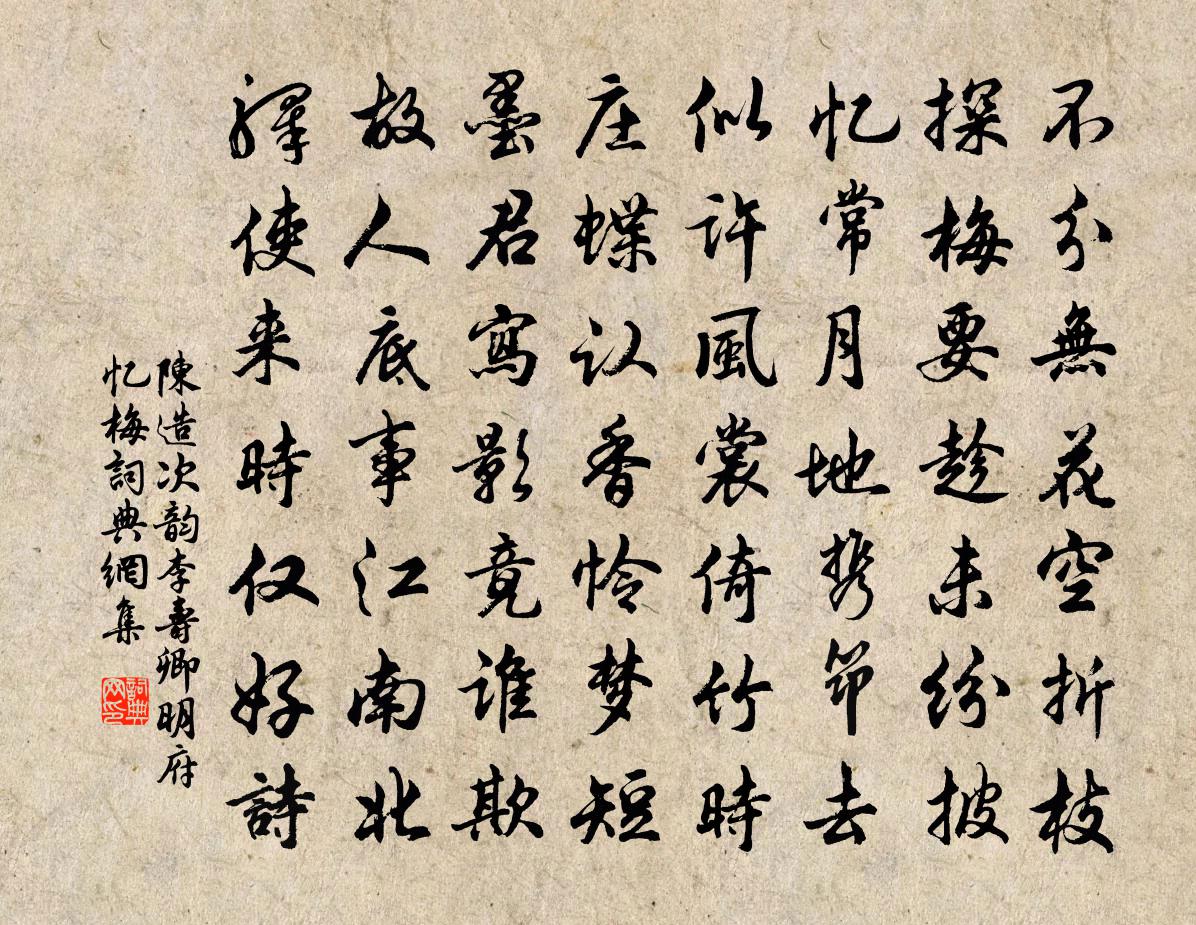 不分無花空折枝
探梅要趁未紛披
忆常月地携筇去
似许風裳倚竹時
庄蝶认香怜梦短
墨君寫影竟谁欺
故人底事江南北
驛使来時仅好詩
陳造次韵李壽卿明府
忆梅詞典網集
詞典網印